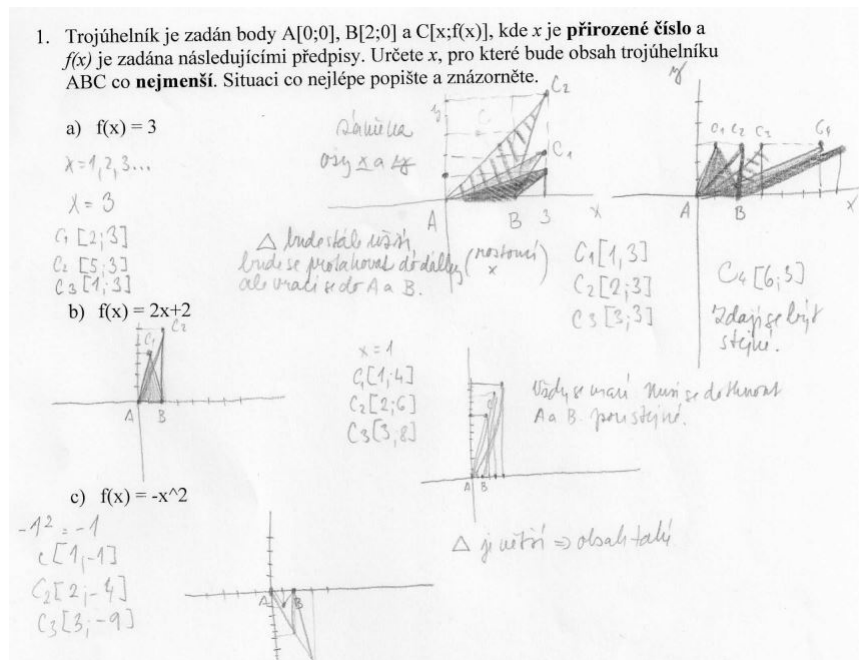 1. Trojúhelník je zadán body A[0;0], B[2;0] a C[x;f(x)], kde x je přirozené číslo a
f(x) je zadána následujícími předpisy. Určete x, pro které bude obsah trojúhelníku
ABC co nejmenší. Situaci co nejlépe popište a znázorněte.
a) f(x) = 3
x = 1, 2, 3...
x = 3
C1 [2;3]
C2 [5;3]
C3 [1;3]
osy x a y
y
C
C2
C1
A
B
3
x
y
C1
C2
C3
C4
A
B
x
△ bude stále užší,
bude se protahovat do dálky (rostoucí x)
ale vrací se do A a B.
C1[1,3]
C2[2;3]
C3[3;3]
C4[6;3]
Zdají se být
stejné.
b) f(x) = 2x+2
C1
C2
A
B
x = 1
C1[1;4]
C2[2;6]
C3[3;8]
A
B
Vždy se vrací. Musí se dotknout
A a B. jsou stejné.
△ je větší ⇒ obsah také
c) f(x) = -x^2
-1² = -1
C[1,-1]
C2[2;-4]
C3[3;-9]
A
B